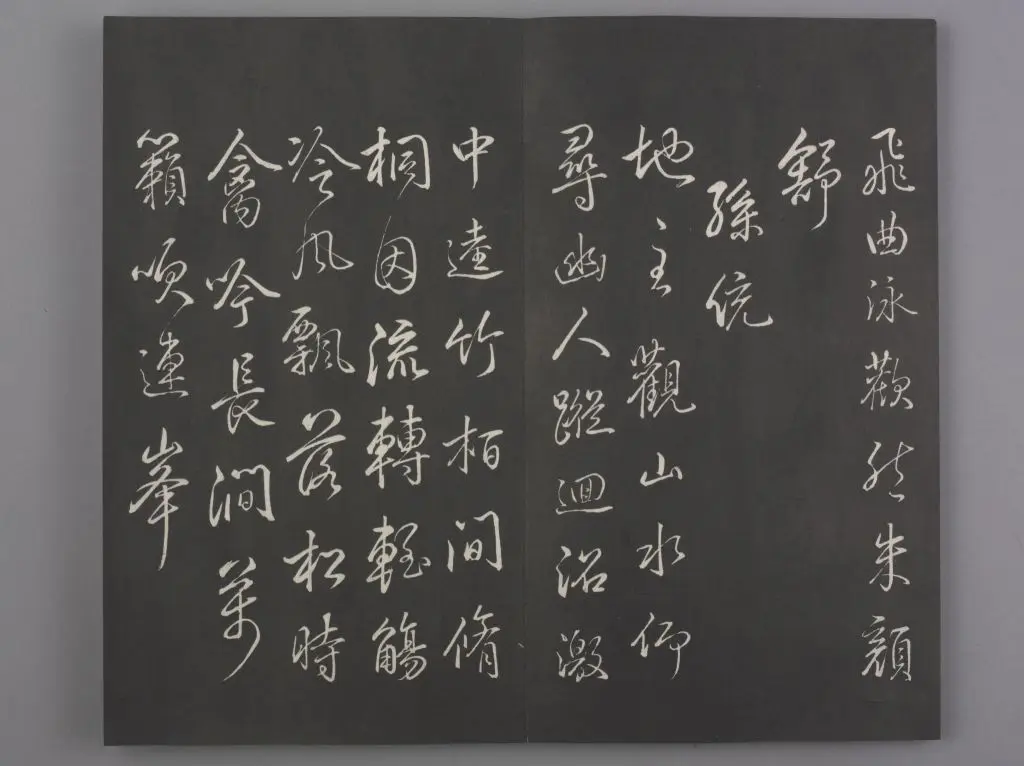 飛曲泳歡然朱顏
舒
孫統
地主觀山水仰
尋幽人蹤迴沼激
中逵竹柏間脩
桐因流轉輕觴
冷風飄落松時
禽吟長澗萬
籟吹連峯